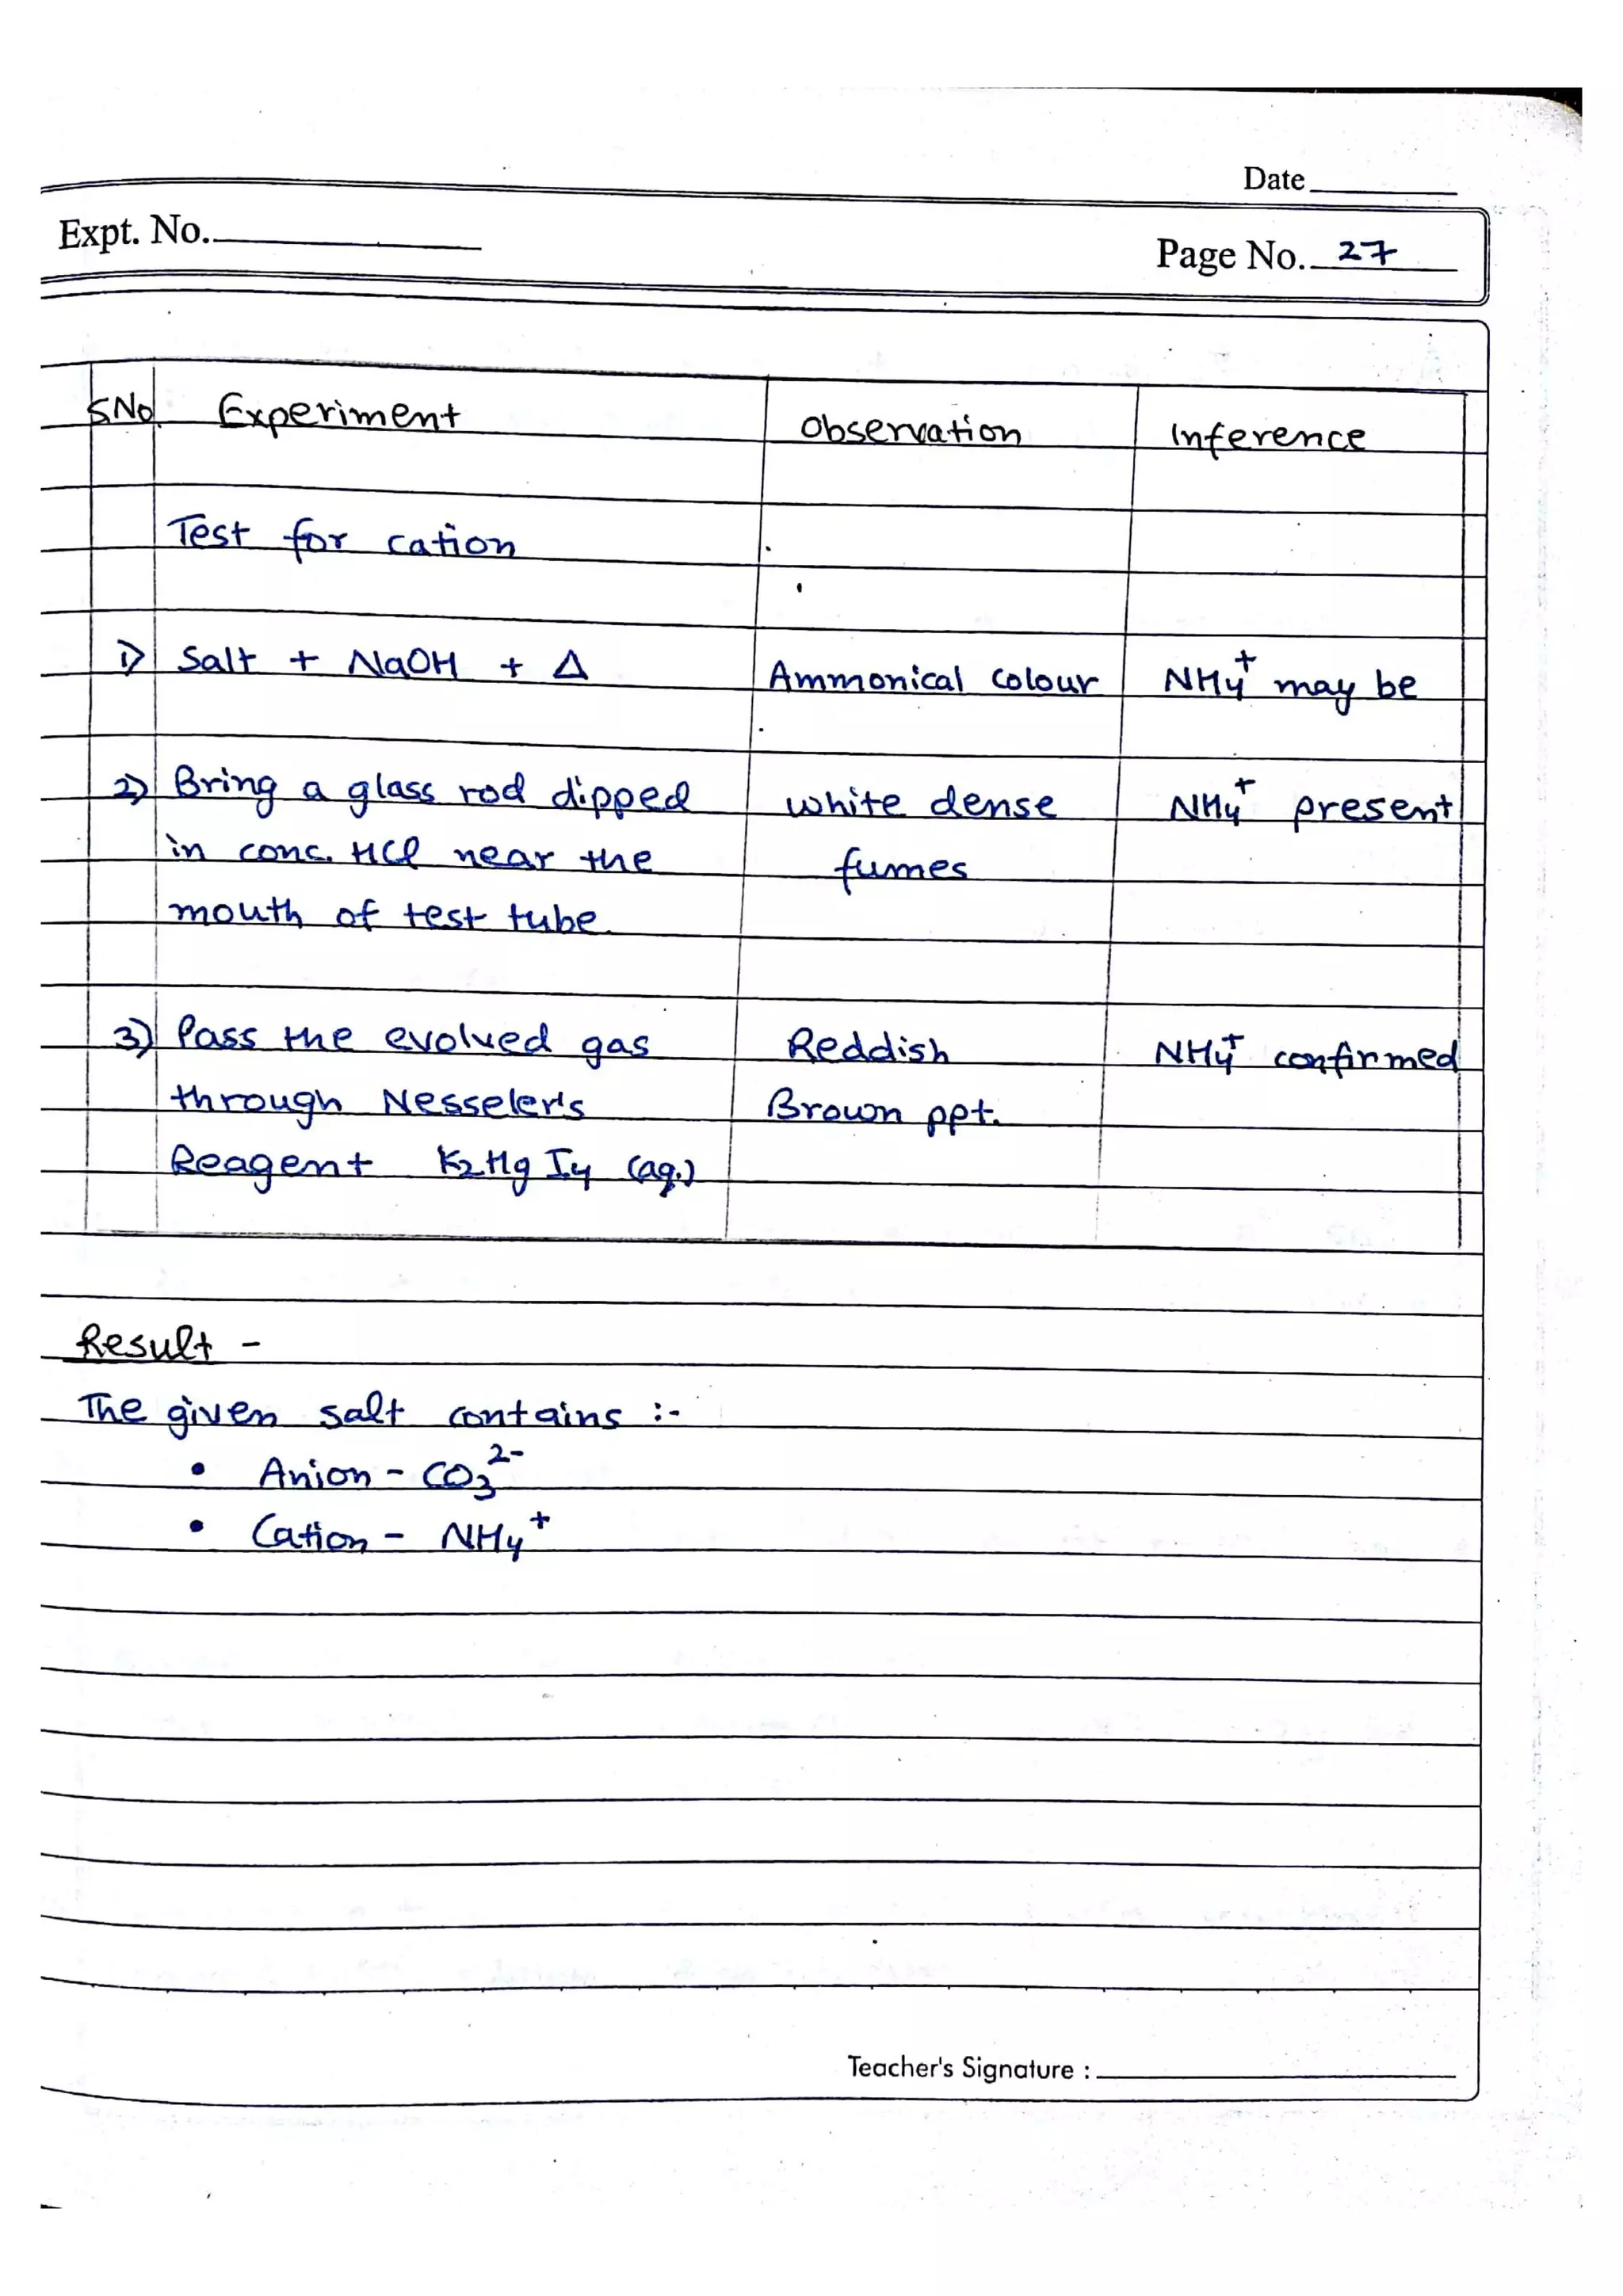 Date
Expt. No.
Page No. 27
S.No. Experiment Observation Inference
Test for cation
1) Salt + NaOH + Δ Ammonical colour NH4+ may be
2) Bring a glass rod dipped white dense NH4+ present
in conc. HCl near the fumes
mouth of test tube.
3) Pass the evolved gas Reddish NH4+ confirmed
through Nesseler's Brown ppt.
Reagent K2HgI4 (aq.)
Result -
The given salt contains :-
• Anion - CO3 2-
• Cation - NH4+
Teacher's Signature :